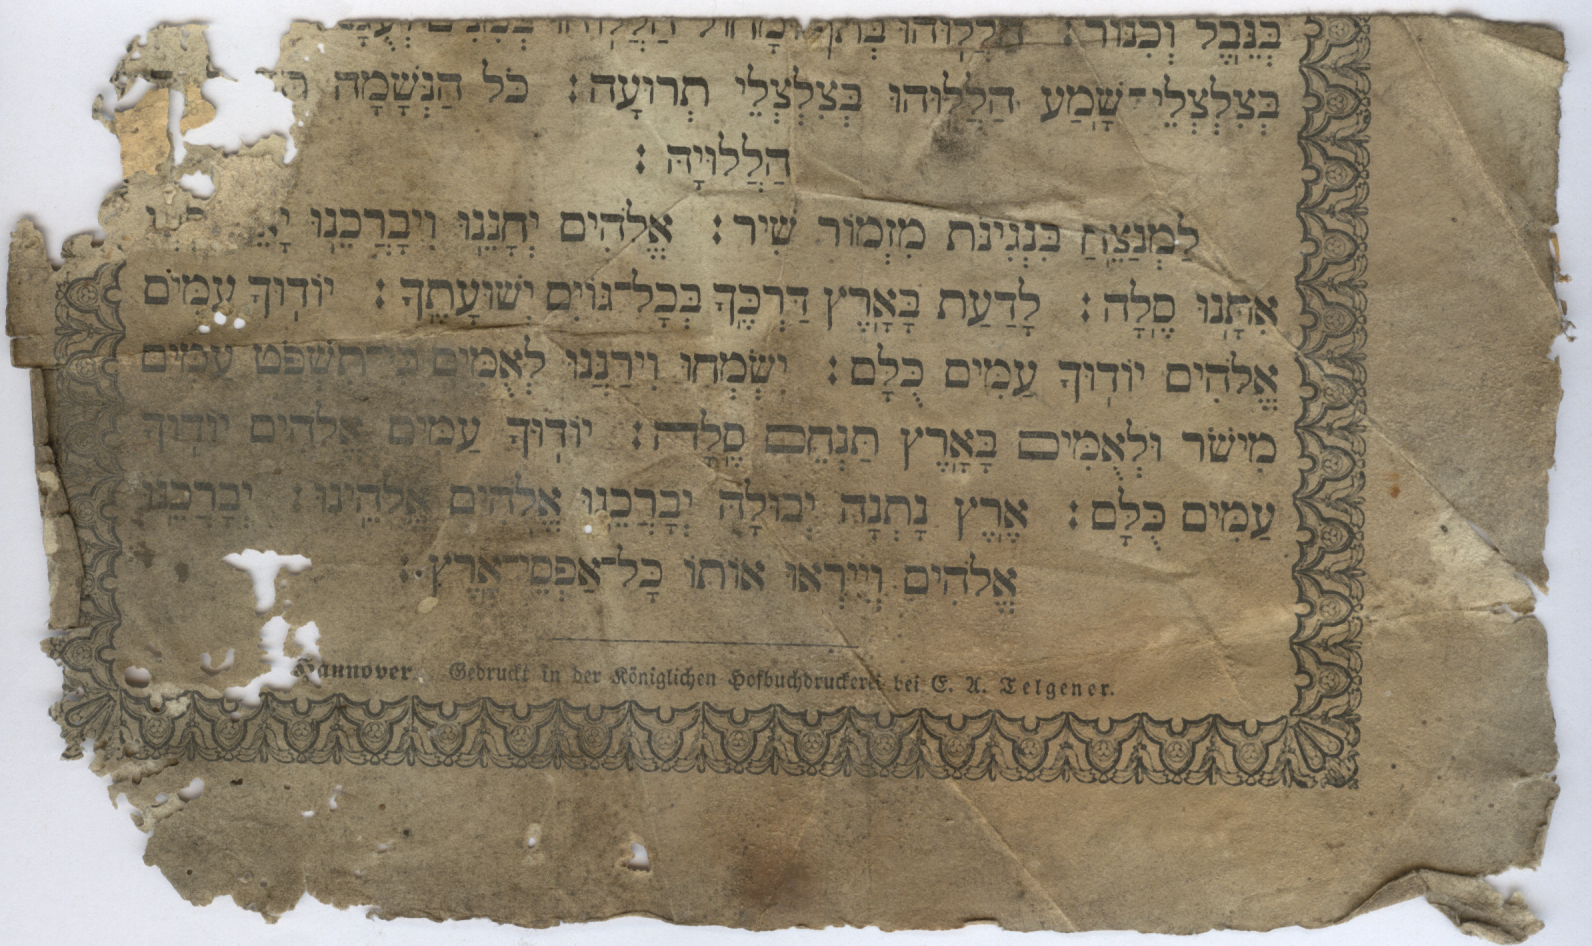 בְּנֵבֶל וְכִנּוֹר׃ הַלְלוּהוּ בְתֹף וּמָחוֹל הַלְלוּהוּ בְּמִנִּים
בְּצִלְצְלֵי־שָׁמַע הַלְלוּהוּ בְּצִלְצְלֵי תְרוּעָה׃ כֹּל הַנְּשָׁמָה
הַלֲלוּיָהּ׃
לַמְנַצֵּחַ בִּנְגִינֹת מִזְמוֹר שִׁיר׃ אֱלֹהִים יְחָנֵּנוּ וִיבָרֲכֵנוּ
אִתָּנוּ סֶלָה׃ לָדַעַת בָּאָרֶץ דַּרְכֶּךָ בְּכָל־גּוֹיִם יְשׁוּעָתֶךָ׃ יוֹדוּךָ עַמִּים
אֱלֹהִים יוֹדוּךָ עַמִּים כֻּלָּם׃ יִשְׂמְחוּ וִירַנְּנוּ לְאֻמִּים כִּי־תִשְׁפֹּט עַמִּים
מִישֹׁר וּלְאֻמִּים בָּאָרֶץ תַּנְחֵם סֶלָה׃ יוֹדוּךָ עַמִּים אֱלֹהִים יוֹדוּךָ
עַמִּים כֻּלָּם׃ אֶרֶץ נָתְנָה יְבוּלָהּ יְבָרֲכֵנוּ אֱלֹהִים אֱלֹהֵינוּ׃ יְבָרֲכֵנוּ
אֱלֹהִים וְיִירְאוּ אוֹתוֹ כָּל־אַפְסֵי־אָרֶץ׃
Hannover. Gedruckt in der Königlichen Hofbuchdruckerei bei E. A. Telgener.